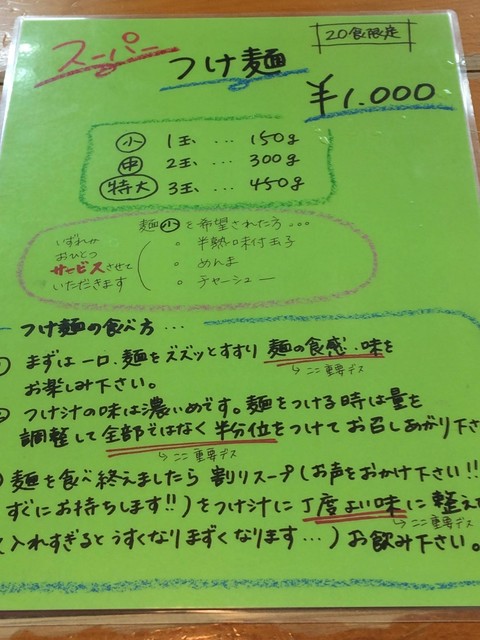 20食限定
スーパー つけ麺
¥1.000
小 1玉、… 150g
中 2玉、… 300g
特大 3玉、… 450g
麺小を希望された方…
いずれか
おひとつ
サービスさせて
いただきます
。半熟味付玉子
。めんま
。チャーシュー
つけ麺の食べ方…
まずは一口、麺をズズッとすすり麺の食感、味を
↳ココ重要デス
お楽しみ下さい。
つけ汁の味は濃いめです。麺をつける時は量を
調整して全部ではなく半分位をつけてお召しあがり下さ
↳ココ重要デス
麺を食べ終えましたら割りスープ(お声をおかけ下さい!!
すぐにお持ちします!!)をつけ汁に丁度よい味に整え
↳ココ重要デス
(入れすぎるとうすくなりまずくなります…)お飲み下さい。